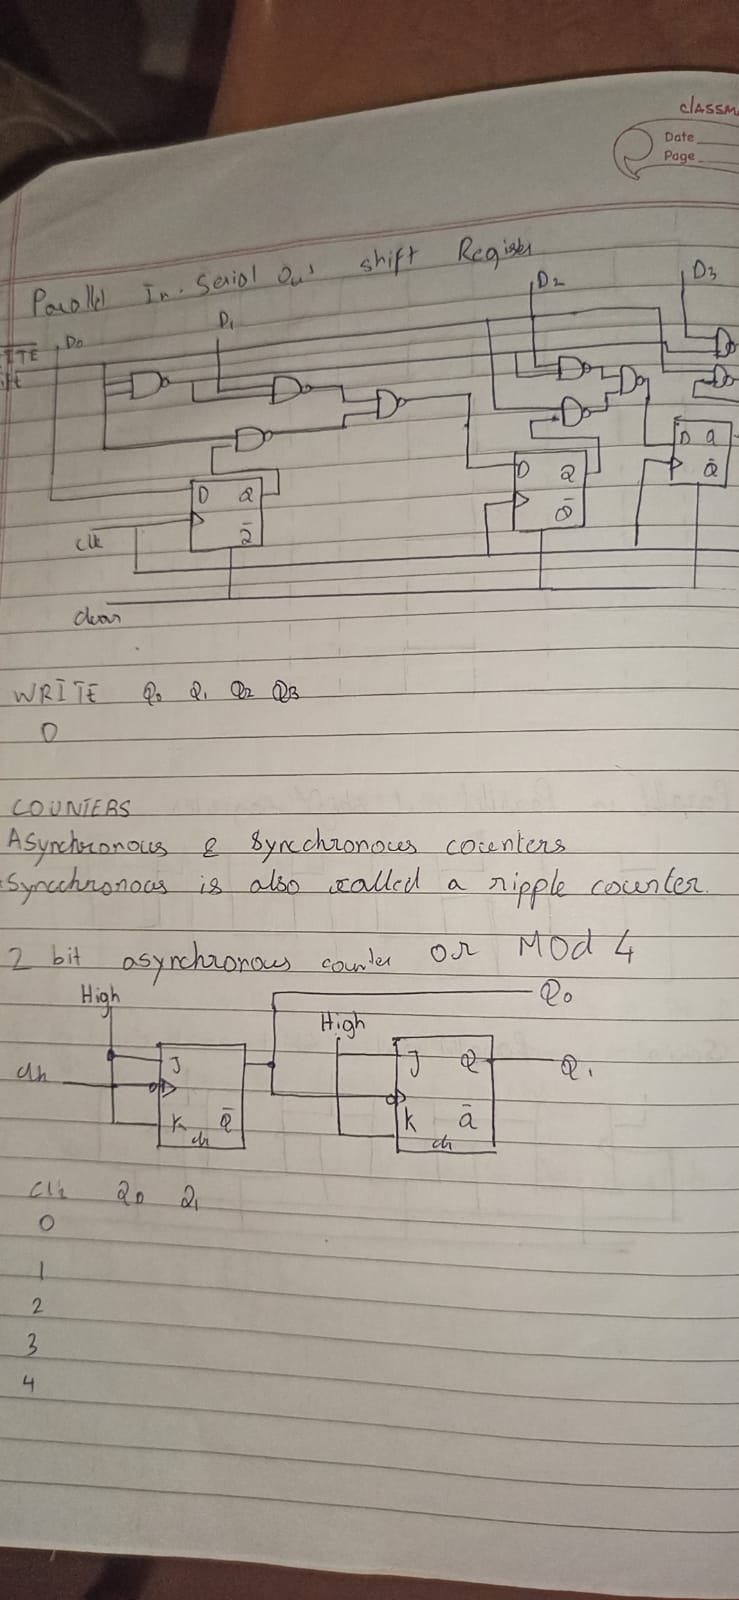 CLASSM
Date
Page
Parallel In-Serial Out shift Register
D2 D3
D1
ITE D0
ift
D Q Q̄
D Q Q̄
D Q Q̄
Clk
clear
WRITE Q0 Q1 Q2 Q3
0
COUNTERS
Asynchronous & Synchronous counters
Syncchronous is also called a ripple counter.
2 bit asynchronous counter or Mod 4
High Q0
High
clk J J Q Q1
K Q̄ K Q̄
Clk Q0 Q1
0
1
2
3
4